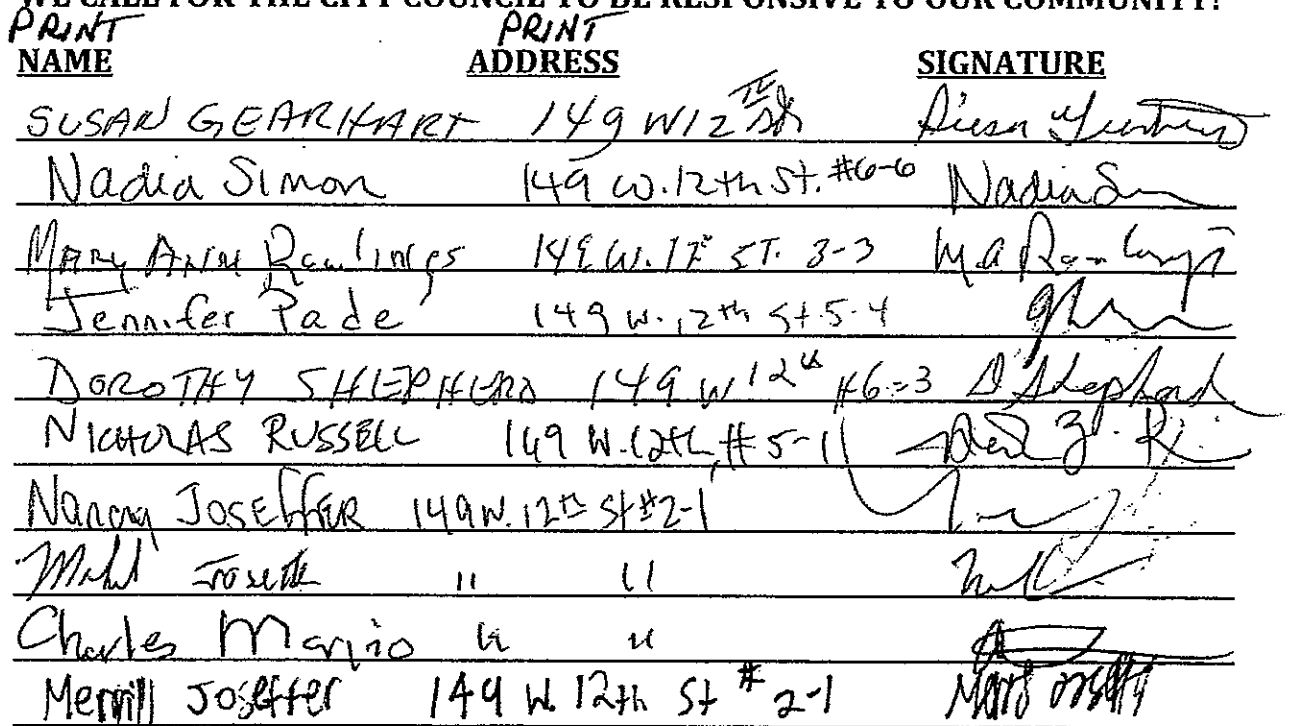 WE CALL FOR THE CITY COUNCIL TO BE RESPONSIVE TO OUR COMMUNITY!
PRINT PRINT
NAME ADDRESS SIGNATURE
SUSAN GEARHART 149 W 12th St
Nadia Simon 149 W. 12th St. #6-6 Nadia S
MARY ANN Rawlings 149 W. 12th ST. 3-3 M.A Rawlings
Jennifer Pade 149 W. 12th St. 5-4
DOROTHY SHEPHERD 149 W 12th #6-3 D Shepherd
NICHOLAS RUSSELL 149 W. 12th, #5-1
Nancy JOSEFFER 149 W. 12th St #2-1
" "
Charles Marino " "
Merrill Joseffer 149 W. 12th St # 2-1